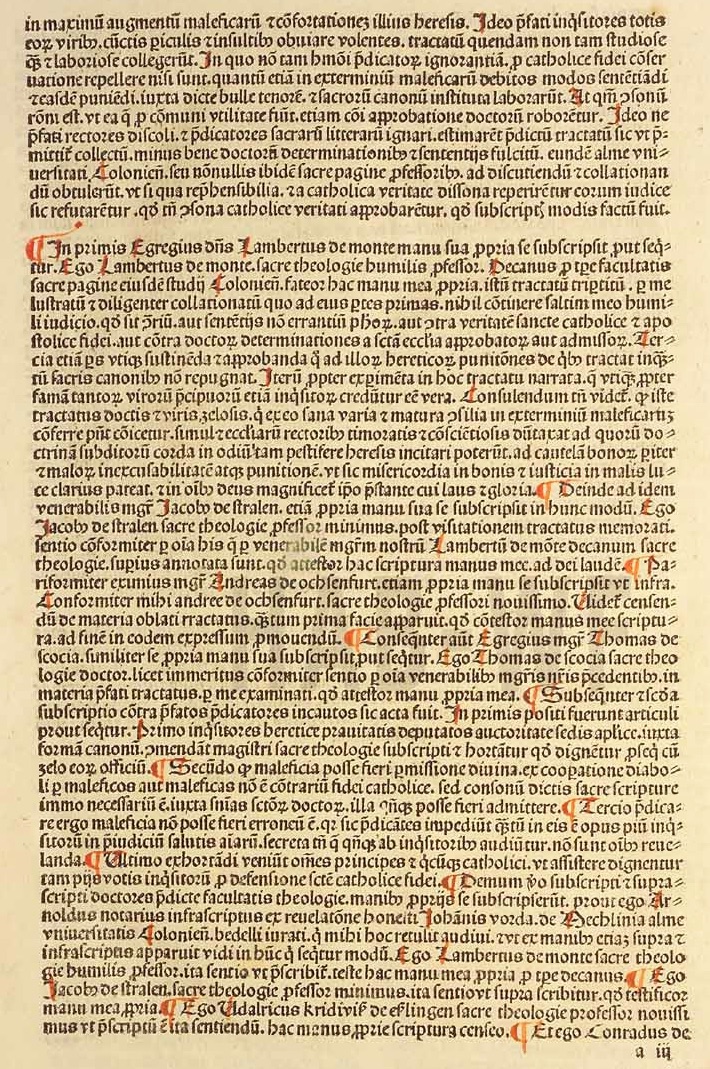 in maximū augmentū maleficarū ⁊ cōfortationez illius heresis. Ideo p̄fati inq̇sitores totis
eoꝝ virib⁹. cūctis ꝑiculis ⁊ insultib⁹ obuiare volentes. tractatū quendam non tam studiose
ꝙ̄ ⁊ laboriose collegerūt. In quo nō tam hmōi p̄dicatoꝝ ignorantiā. ꝓ catholice fidei cōser
uatione repellere nisi sunt. quantū etiā in exterminiū maleficarū debitos modos sententiādi
⁊ easdē puniēdi. iuxta dicte bulle tenorē. ⁊ sacrorū canonū instituta laborarūt. At qm̄ ꝯsonū
rōni est. vt ea q̄ ꝓ cōmuni vtilitate fiūt. etiam cōi approbatione doctorū roborētur. Ideo ne
p̄fati rectores discoli. ⁊ p̄dicatores sacrarū litterarū ignari. estimarēt p̄dictū tractatū sic vt p̄-
mittit̄ collectū. minus bene doctorū determinationib⁹ ⁊ sententijs fulcitū. eundē alme vni-
uersitati Colonień. seu nōnullis ibidē sacre pagine ꝓfessorib⁹. ad discutiendū ⁊ collationan
dū obtulerūt. vt si qua rep̄hensibilia. ⁊ a catholica veritate dissona reperirētur eorum iudice
sic refutarētur. qd̄ tn̄ ꝯsona catholice veritati approbarētur. qd̄ subscriptꝭ modis factū fuit.
¶ In primis Egregius dn̄s Lambertus de monte manu sua ꝓpria se subscripsit ꝓut seq̄-
tur. Ego Lambertus de monte. sacre theologie humilis ꝓfessor. Decanus ꝓ tp̄e facultatis
sacre pagine eiusdē studij Colonień. fateor hac manu mea ꝓpria. istū tractatū triꝑtitū. ꝑ me
lustratū ⁊ diligenter collationatū quo ad eius ꝑtes primas. nihil cōtinere saltim meo humi-
li iudicio. qd̄ sit ꝯ̄riū. aut sententijs nō errantiū ph̄oꝝ. aut ꝯtra veritatē sancte catholice ⁊ apo
stolice fidei. aut cōtra doctoꝝ determinationes a sctā eccl̄ia approbatoꝝ aut admissoꝝ. Ter-
cia etiā ꝑs vtiqꝫ sustinēda ⁊ approbanda q̄ ad illoꝝ hereticoꝝ punitōnes de q̇b⁹ tractat inqꝫ̄-
tū sacris canonib⁹ nō repugnat. Iterū ꝓpter exꝑimēta in hoc tractatu narrata. q̄ vtiqꝫ ꝓpter
famā tantoꝝ virorū p̄cipuorū etiā inq̇sitoꝝ credūtur eē vera. Consulendum tn̄ videt̄. ꝙ iste
tractatus doctis ⁊ viris zelosis. q̇ ex eo sana varia ⁊ matura ꝯsilia in exterminiū maleficarꝫ
cōferre pn̄t cōicetur. simul ⁊ eccl̄iarū rectorib⁹ timoratis ⁊ cōsciētiosis dūtaxat ad quorū do-
ctrinā subditorū corda in odiū tam pestifere heresis incitari poterūt. ad cautelā bonoꝝ ꝑiter
⁊ maloꝝ inexcusabilitatē atqꝫ punitionē. vt sic misericordia in bonis ⁊ iusticia in malis lu-
ce clarius pateat. ⁊ in oib⁹ deus magnificet̄ ip̄o p̄stante cui laus ⁊ gloria. ¶ Deinde ad idem
venerabilis mgr̄ Jacob⁹ de stralen. etiā ꝓpria manu sua se subscripsit in hunc modū. Ego
Jacob⁹ de stralen sacre theologie ꝓfessor minimus. post visitationem tractatus memorati.
sentio cōformiter ꝑ oīa his q̄ ꝑ venerabilē mgr̄m nostrū Lambertū de mōte decanum sacre
theologie. supius annotata sunt. qd̄ attestor hac scriptura manus mee. ad dei laudē. ¶ Pa-
riformiter eximius mgr̄ Andreas de ochsenfurt. etiam ꝓpria manu se subscripsit vt infra.
Conformiter mihi andree de ochsenfurt. sacre theologie ꝓfessori nouissimo. Videt̄ censen-
dū de materia oblati tractatus. qꝫ̄tum prima facie apparuit. qd̄ cōtestor manus mee scriptu-
ra. ad finē in eodem expressum ꝓmouendū. ¶ Conseq̄nter aūt Egregius mgr̄ Thomas de
scocia. similiter se ꝓpria manu sua subscripsit. put seq̄tur. Ego Thomas de scocia sacre theo
logie doctor. licet immeritus cōformiter sentio ꝑ oīa venerabilib⁹ mgr̄is nr̄is p̄cedentib⁹. in
materia p̄fati tractatus. ꝑ me examinati. qd̄ attestor manu ꝓpria mea. ¶ Subseq̄nter ⁊ scd̄a
subscriptio cōtra p̄fatos p̄dicatores incautos sic acta fuit. In primis positi fuerunt articuli
prout seq̄tur. Primo inq̇sitores heretice prauitatis deputatos auctoritate sedis aplice. iuxta
formā canonū. ꝯmendāt magistri sacre theologie subscripti ⁊ hortātur qd̄ dignētur ꝓseq̄ cū
zelo eoꝝ officiū. ¶ Secūdo ꝙ maleficia posse fieri ꝑmissione diuina. ex cooꝑatione diabo-
li ꝑ maleficos aut maleficas nō ē cōtrariū fidei catholice. sed consonū dictis sacre scripture
immo necessariū ē. iuxta sn̄ias sctōꝝ doctoꝝ. illa qn̄qꝫ posse fieri admittere. ¶ Tercio p̄dica-
re ergo maleficia nō posse fieri erroneū ē. qꝛ sic p̄dicātes impediūt qꝫ̄tū in eis ē opus piū inq̇-
sitorū in p̄iudiciū salutis aiarū. secreta tn̄ q̄ qn̄qꝫ ab inq̇sitorib⁹ audiūtur. nō sunt oib⁹ reue-
landa. ¶ Ultimo exhortādi veniūt om̄es principes ⁊ q̇cūqꝫ catholici. vt assistere dignentur
tam pijs votis inq̇sitorū ꝓ defensione sctē catholice fidei. ¶ Demum v̊o subscripti ⁊ supra-
scripti doctores p̄dicte facultatis theologie. manib⁹ ꝓprijs se subscripserūt. prout ego Ar-
noldus notarius infrascriptus ex reuelatōne honesti Johānis vorda. de Mechlinia alme
vniuersitatis Colonień. bedelli iurati. q̇ mihi hoc retulit audiui. ⁊ vt ex manib⁹ etiaz supra ⁊
infrascriptis apparuit vidi in hūc q̇ seq̄tur modū. Ego Lambertus de monte sacre theolo
gie humilis ꝓfessor. ita sentio vt p̄scribit̄. teste hac manu mea ꝓpria ꝓ tp̄e decanus. ¶ Ego
Jacob⁹ de stralen. sacre theologie ꝓfessor minimus. ita sentio vt supra scribitur. qd̄ testificor
manu mea ꝓpria. ¶ Ego Udalricus kridiviß de eßlingen sacre theologie professor nouissi
mus vt p̄scriptū ē ita sentiendū. hac manus ꝓprie scriptura censeo. ¶ Et ego Conradus de
a iij